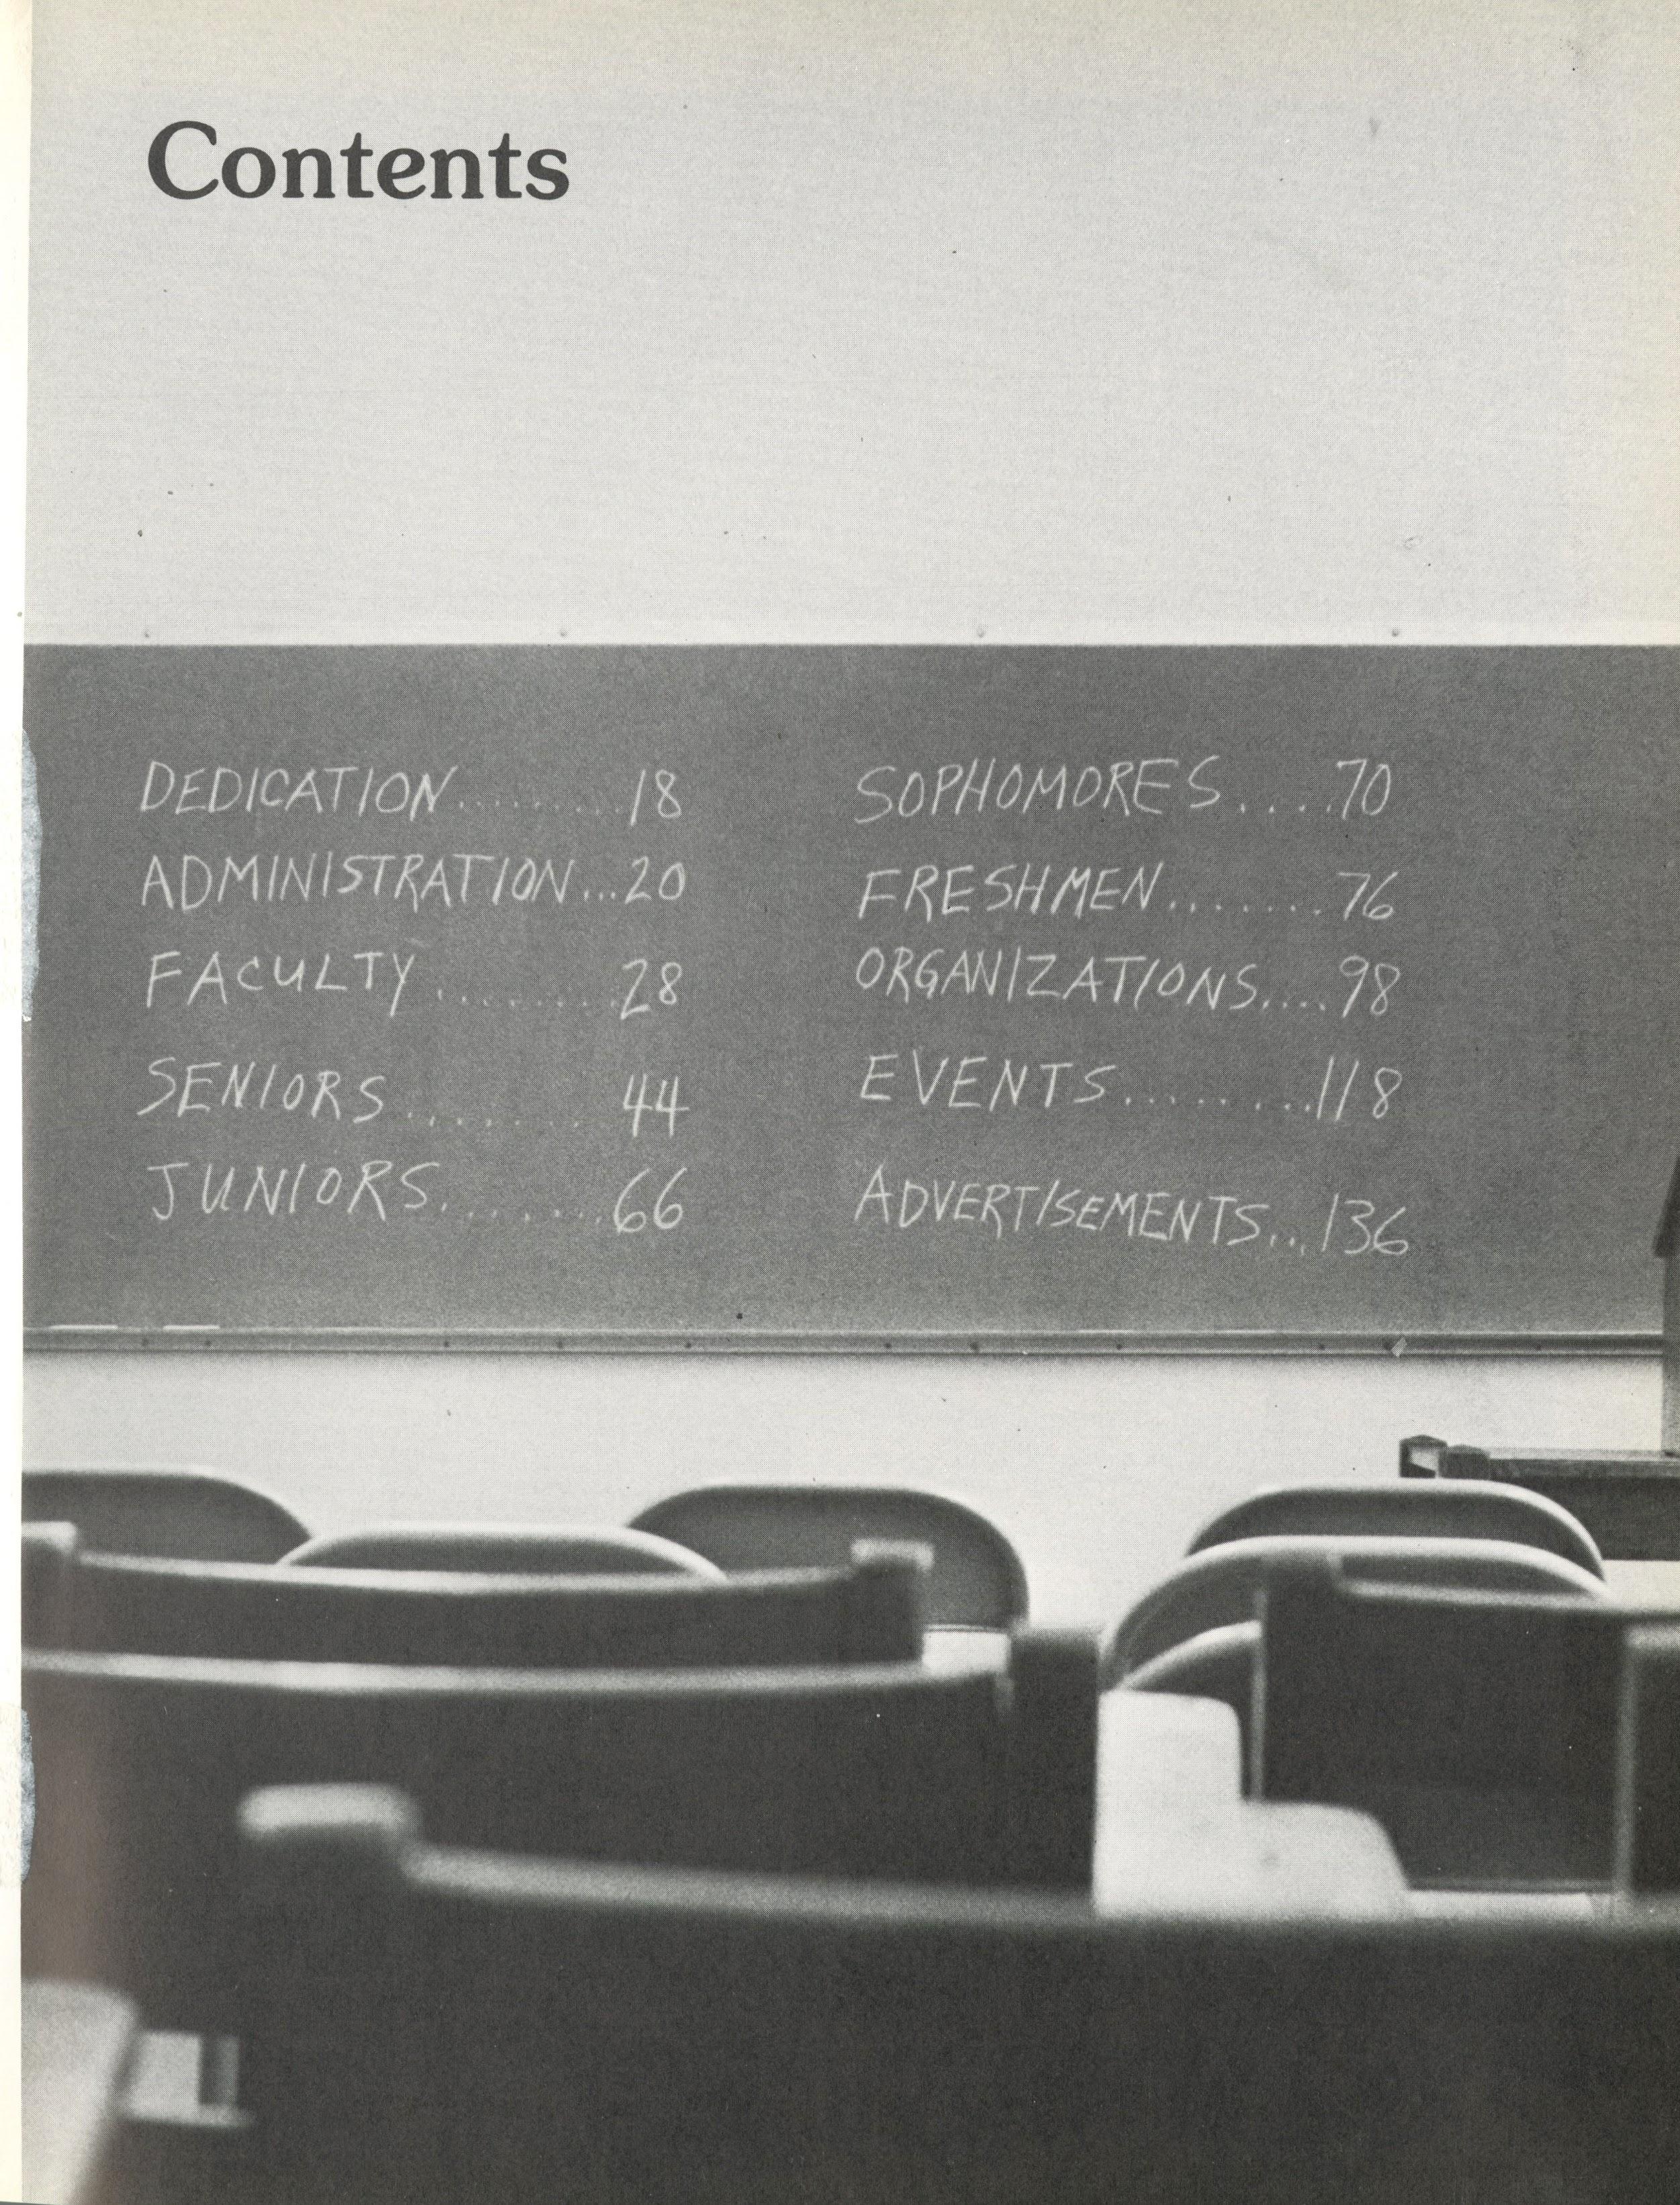 Contents
DEDICATION.........18
ADMINISTRATION...20
FACULTY.........28
SENIORS........44
JUNIORS........66
SOPHOMORES.....70
FRESHMEN.......76
ORGANIZATIONS....98
EVENTS........118
ADVERTISEMENTS...136